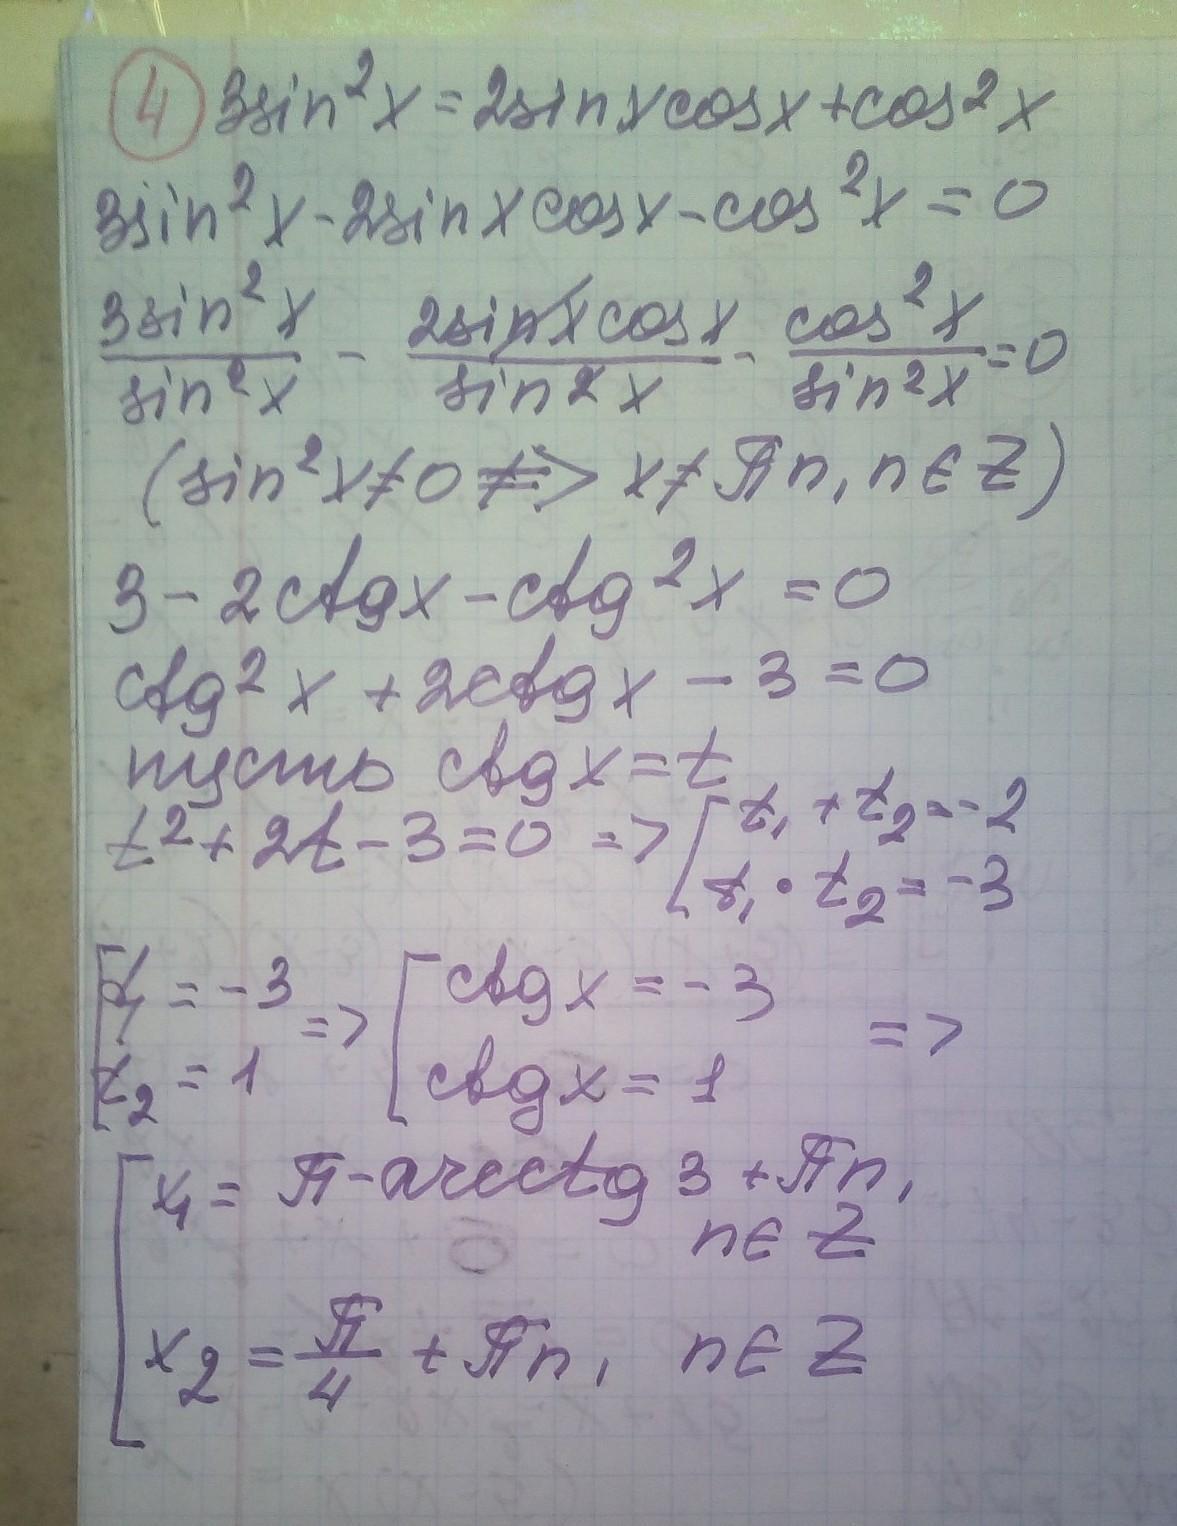 ④ 3sin²x = 2sinxcosx + cos²x
3sin²x - 2sinxcosx - cos²x = 0
3sin²x/sin²x - 2sinxcosx/sin²x - cos²x/sin²x = 0
(sin²x ≠ 0 ≠> x ≠ πn, n ∈ Z)
3 - 2ctgx - ctg²x = 0
ctg²x + 2ctgx - 3 = 0
пусть ctgx = t
t² + 2t - 3 = 0 => [ t₁ + t₂ = -2
t₁ · t₂ = -3
[ t₁ = -3 => [ ctgx = -3 =>
t₂ = 1 ctgx = 1
[ x₁ = π - arcctg 3 + πn,
n ∈ Z
x₂ = π/4 + πn, n ∈ Z